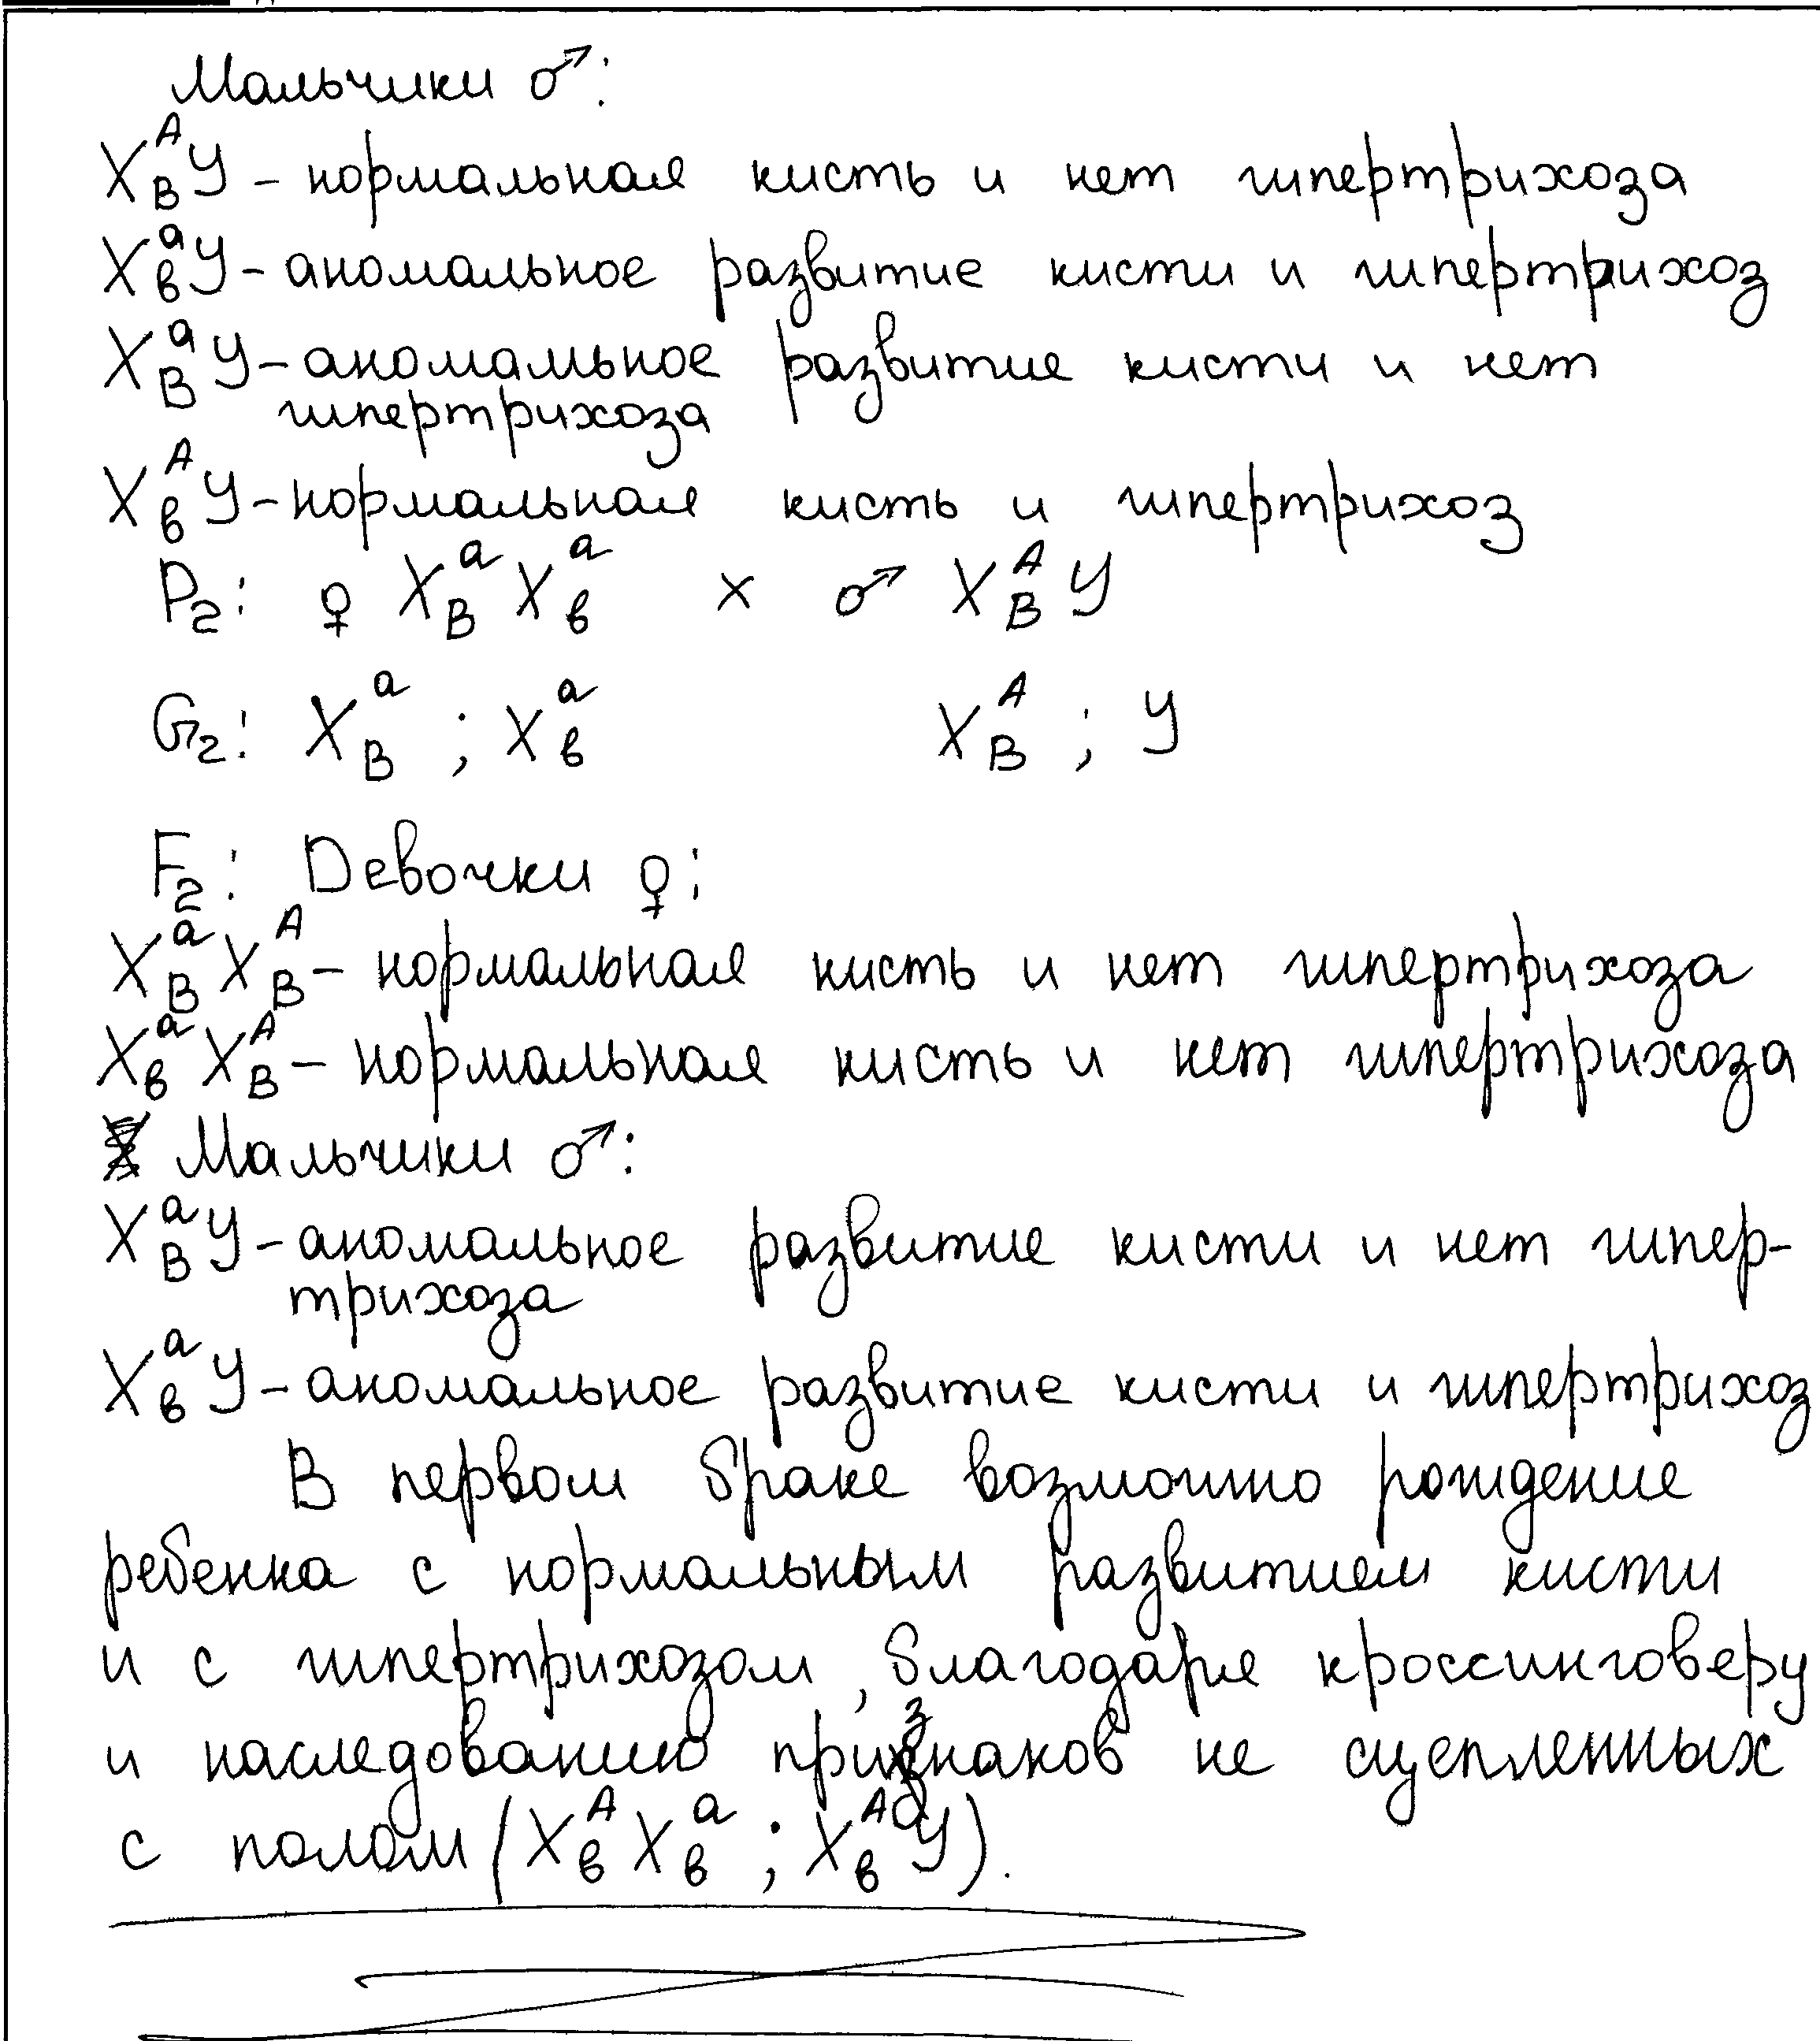 Мальчики ♂:
XᴬᵦY – нормальная кисть и нет гипертрихоза
XᵃвY – аномальное развитие кисти и гипертрихоз
XᵃBY – аномальное развитие кисти и нет
гипертрихоза
XᴬвY – нормальная кисть и гипертрихоз
P₂: ♀ XᵃBXᵃв × ♂ XᴬBY
G₂: XᵃB ; Xᵃв XᴬB ; Y
F₂: Девочки ♀:
XᵃBXᴬB – нормальная кисть и нет гипертрихоза
XᵃвXᴬB – нормальная кисть и нет гипертрихоза
Мальчики ♂:
XᵃBY – аномальное развитие кисти и нет гипер-
трихоза
XᵃвY – аномальное развитие кисти и гипертрихоз
В первом браке возможно рождение
ребенка с нормальным развитием кисти
и с гипертрихозом, благодаря кроссинговеру
и наследованию признаков не сцепленных
с полом (XᴬвXᵃв ; XᴬвY).